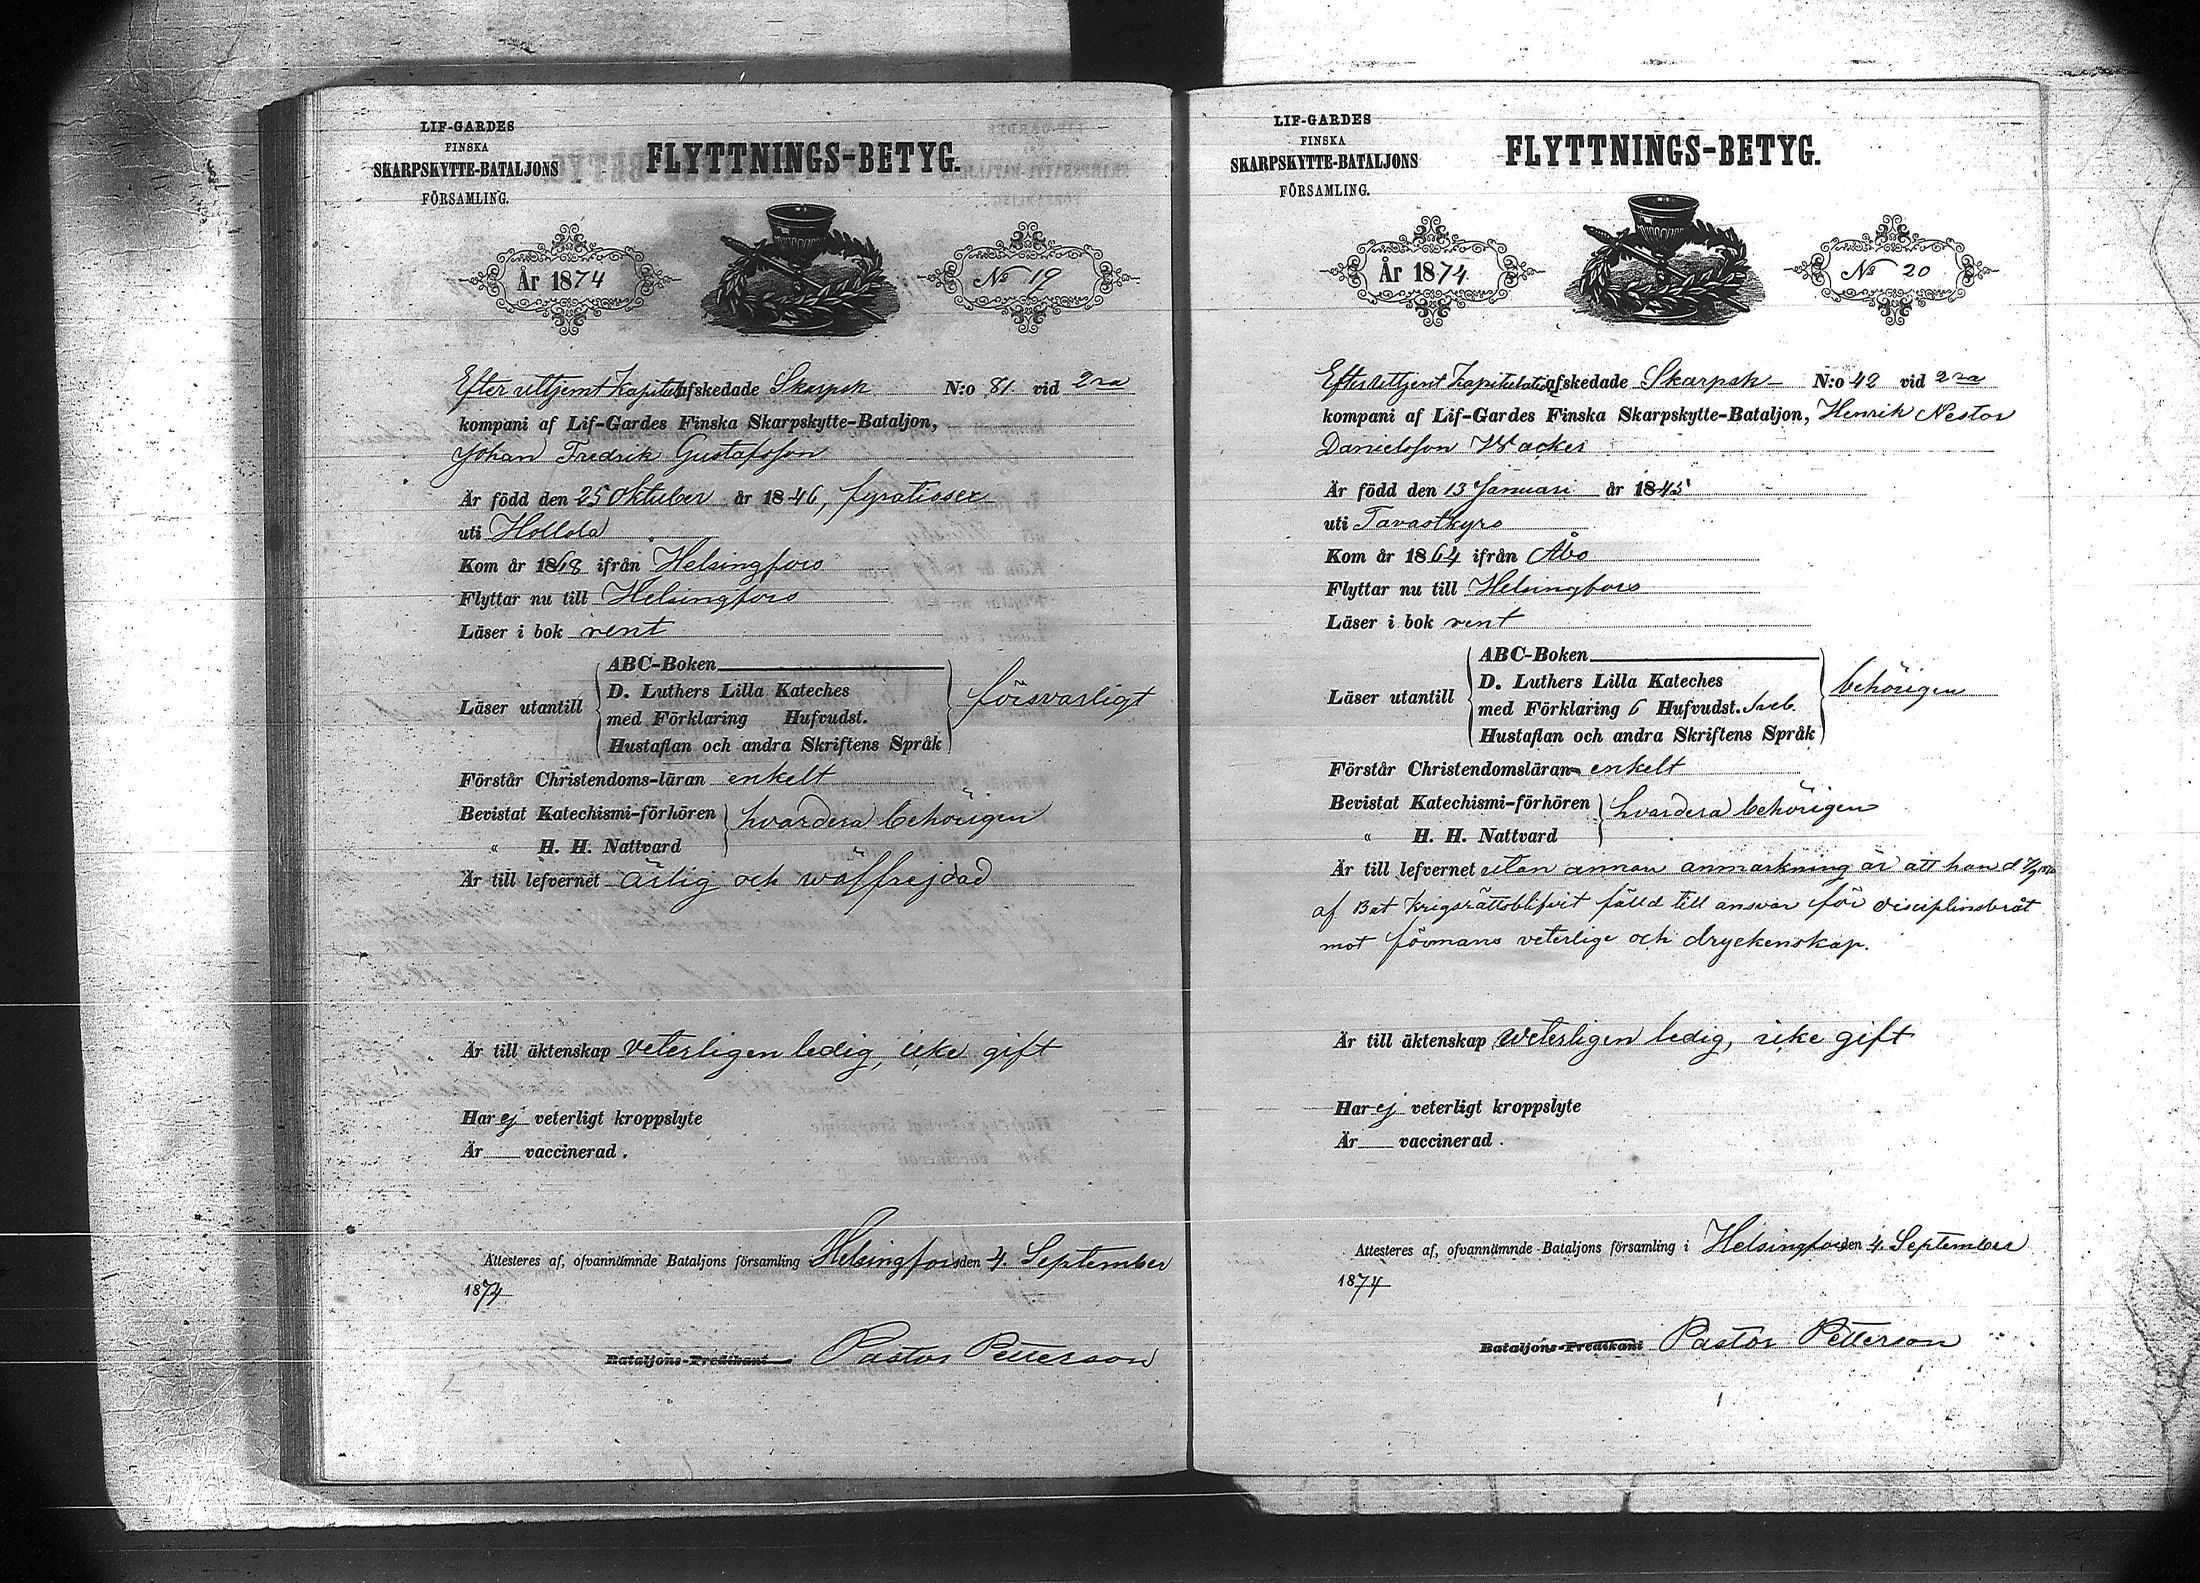 LIF-GARDES
FINSKA
SKARPSKYTTE-BATALJONS
FÖRSAMLING.
FLYTTNINGS-BETYG.
År 1874
No 19
Efter uttjent Kapitul afskedade Skarpsk N:o 81 vid 2ra
kompani af Lif-Gardes Finska Skarpskytte-Bataljon,
Johan Fredrik Gustafsson
Är född den 25 Oktuber år 1846, fyratiosex
uti Hollola
Kom år 1868 ifrån Helsingfors
Flyttar nu till Helsingfors
Läser i bok rent
Läser utantill
ABC-Boken
D. Luthers Lilla Kateches
med Förklaring Hufvudst.
Hustaflan och andra Skriftens Språk
försvarligt
Förstår Christendoms-läran enkelt
Bevistat Katechismi-förhören
„ H. H. Nattvard
hvardera behörigen
Är till lefvernet ärlig och wälfrejdad
Är till äktenskap veterligen ledig, icke gift
Har ej veterligt kroppslyte
Är vaccinerad.
Attesteres af, ofvannämnde Bataljons församling Helsingfors den 4. September
1874
Bataljons-Predikant Pastor Petterson
LIF-GARDES
FINSKA
SKARPSKYTTE-BATALJONS
FÖRSAMLING.
FLYTTNINGS-BETYG.
År 1874
No 20
Efter uttjent Kapitulation afskedade Skarpsk N:o 42 vid 2ra
kompani af Lif-Gardes Finska Skarpskytte-Bataljon, Henrik Nestor
Danielsson Wacker
Är född den 13 Januari år 1845
uti Tavastkyro
Kom år 1864 ifrån Åbo
Flyttar nu till Helsingfors
Läser i bok rent
Läser utantill
ABC-Boken
D. Luthers Lilla Kateches
med Förklaring 6 Hufvudst. Sveb.
Hustaflan och andra Skriftens Språk
behörigen
Förstår Christendomsläran enkelt
Bevistat Katechismi-förhören
„ H. H. Nattvard
hvardera behörigen
Är till lefvernet utan annan anmarkning är att han d
af Bat Krigsrätts blifvit fälld till ansvar för disciplinsbråt
mot förmans veterlige och dryckenskap.
Är till äktenskap weterligen ledig, icke gift
Har ej veterligt kroppslyte
Är vaccinerad.
Attesteres af, ofvannämnde Bataljons församling i Helsingfors den 4. September
1874
Bataljons-Predikant Pastor Petterson